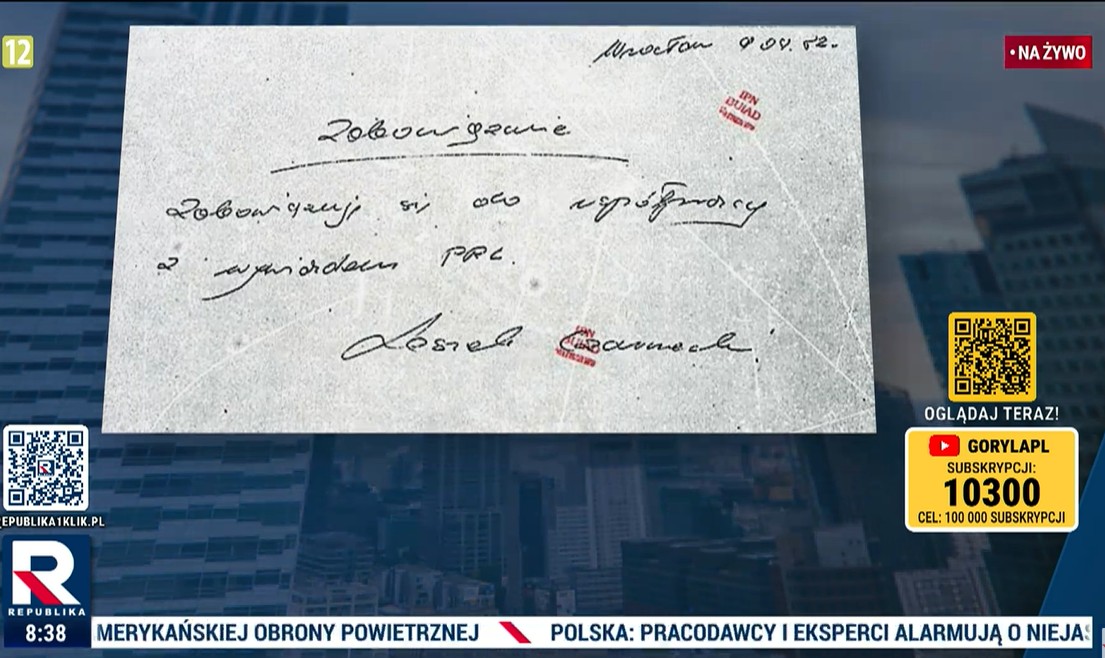 12
Wrocław 9 04. 82.
• NA ŻYWO
IPN
BUiAD
Zobowiązanie
Zobowiązuję się do współpracy
z wywiadem PRL.
Leszek Czarnecki
IPN
OGLĄDAJ TERAZ!
GORYLAPL
SUBSKRYPCJI:
10300
CEL: 100 000 SUBSKRYPCJI
EPUBLIKA1KLIK.PL
R
REPUBLIKA
8:38
MERYKAŃSKIEJ OBRONY POWIETRZNEJ POLSKA: PRACODAWCY I EKSPERCI ALARMUJĄ O NIEJAS